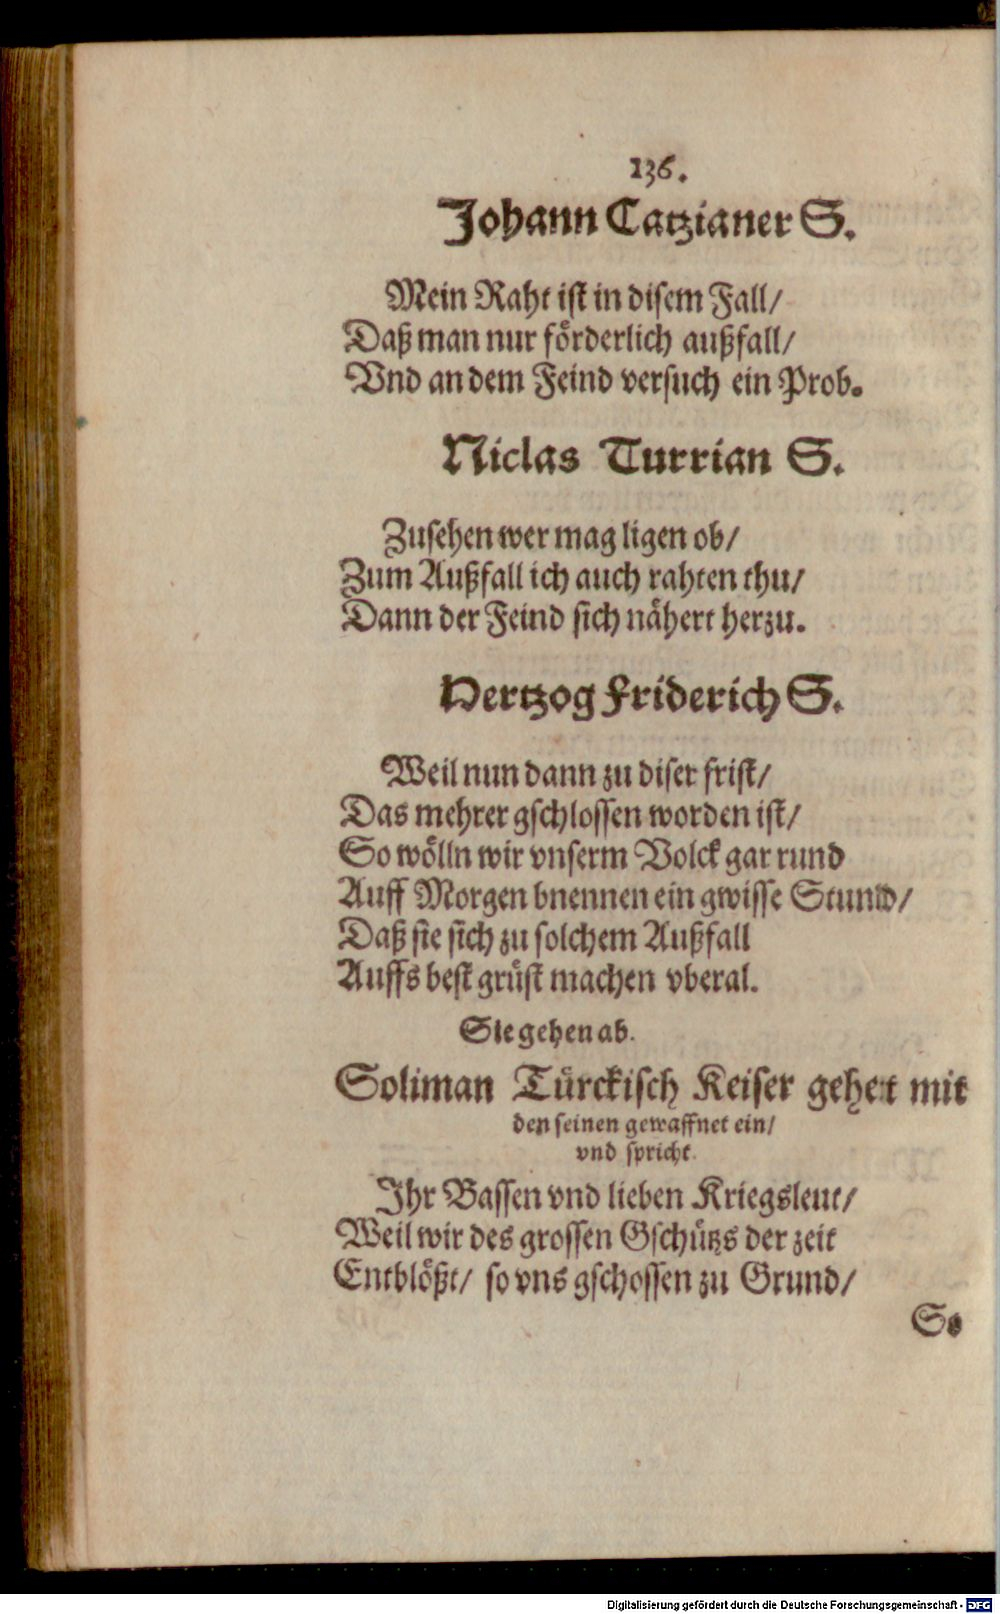 136.
Johann Catzianer S.
Mein Raht ist in disem Fall/
Daß man nur förderlich außfall/
Vnd an dem Feind versuch ein Prob.
Niclas Turrian S.
Zusehen wer mag ligen ob/
Zum Außfall ich auch rahten thu/
Dann der Feind sich nähert herzu.
Hertzog Friderich S.
Weil nun dann zu diser frist/
Das mehrer gschlossen worden ist/
So wölln wir vnserm Volck gar rund
Auff Morgen bnennen ein gwisse Stund/
Daß sie sich zu solchem Außfall
Auffs best grüst machen vberal.
Sie gehen ab.
Soliman Türckisch Keiser gehet mit
den seinen gewaffnet ein/
vnd spricht.
Ihr Bassen vnd lieben Kriegsleut/
Weil wir des grossen Gschützs der zeit
Entblößt/ so vns gschossen zu Grund/
So
Digitalisierung gefördert durch die Deutsche Forschungsgemeinschaft - DFG